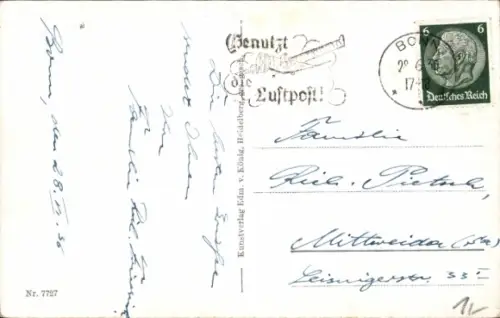 Bonn, den 28. VI. 36
Die besten Grüße
sendet Ihnen
Familie
Kunstverlag Edm. v. König, Heidelberg
Nr. 7727
Benutzt
die
Luftpost!
BO
17-
6 6
Deutsches Reich
Familie
Rich. Pietsch,
Mittweida (Sa.)
Leisnigerstr. 33 I